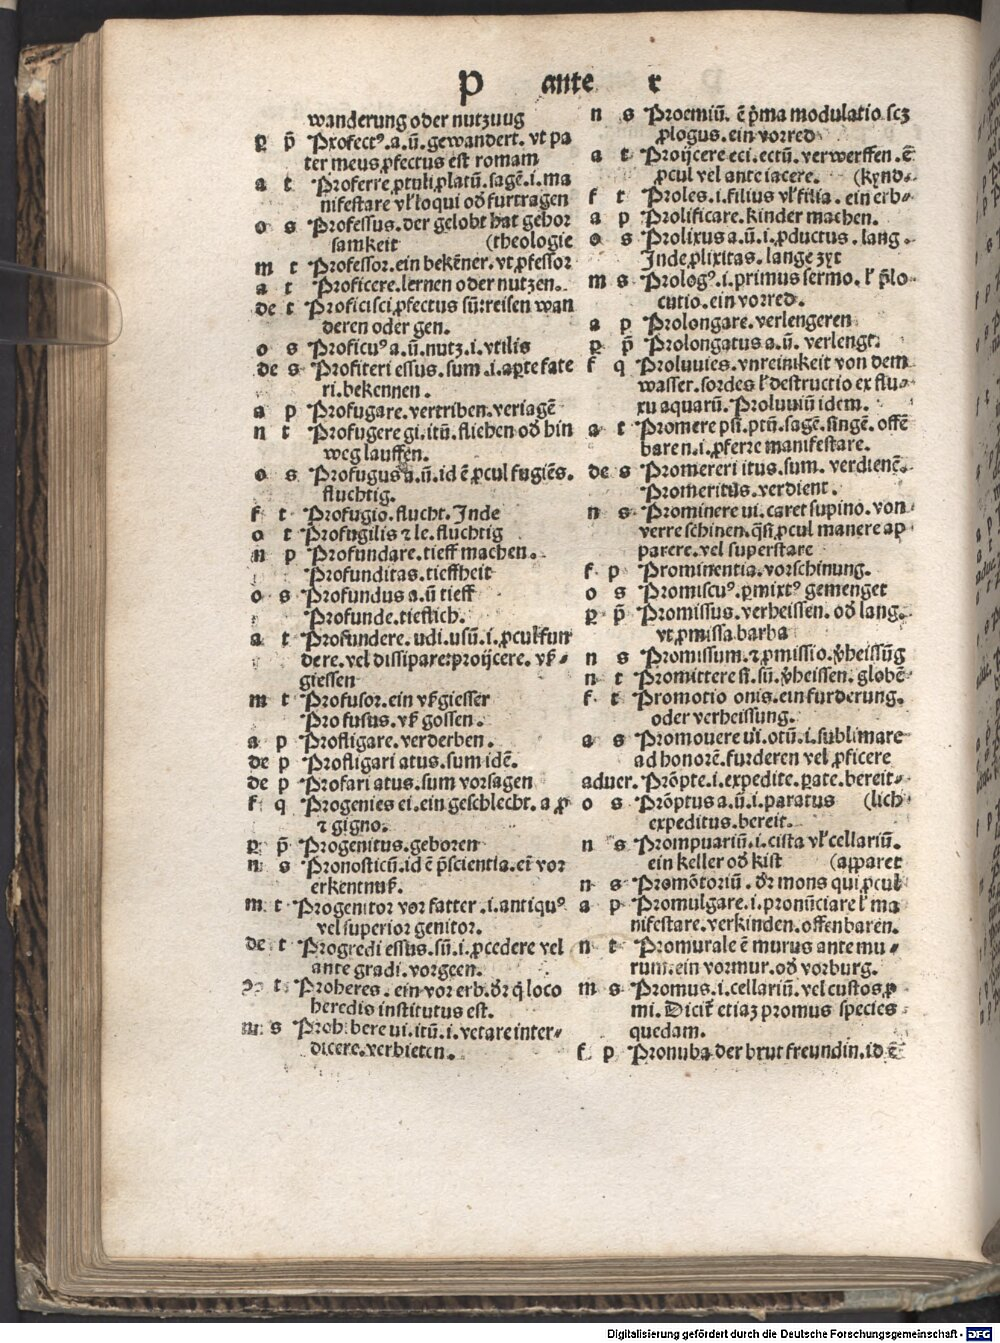 P ante r
wanderung oder nutzuug
ꝑ p̄ Profectꝰ.a.ū.gewandert.vt pa
ter meus ꝓfectus est romam
a t Proferre ꝓtuli ꝓlatū.sagē.i.ma
nifestare vl' loqui od' furtragen
o s Professus.der gelobt hat gehor
samkeit (theologie
m t Professor.ein bekēner.vt ꝓfessor
a t Proficere.lernen oder nutzen.
de t Proficisci ꝓfectus sū:reisen wan
deren oder gen.
o s Proficuꝰ a.ū.nutz.i.vtilis
de s Profiteri essus.sum.i.aꝑte fate
ri.bekennen.
a p Profugare.vertriben.veriagē
n t Profugere gi.itū.fliehen od' hin
weg lauffen.
o s Profugus a.ū.id ē ꝓcul fugiēs.
fluchtig.
f t Profugio.flucht.Inde
o t Profugilis ⁊ le.fluchtig
n p Profundare.tieff machen.
Profunditas.tieffheit
o s Profundus a.ū tieff
Profunde.tieflich.
a t Profundere.udi.usū.i.ꝓcul fun
dere.vel dissipare:proijcere.v'-
giessen
m t Profusor.ein v'giesser
Profusus.v' gossen.
a p Profligare.verderben.
de p Profligari atus.sum idē.
de p Profari atus.sum vorsagen
f q Progenies ei.ein geschlecht.a ꝓ
⁊ gigno.
ꝑ p̄ Progenitus.geboren
n s Pronosticū.id ē p̄scientia.et vor
erkentnuß.
m t Progenitor vor fatter.i.antiquꝰ
vel superior genitor.
de t Progredi essus.sū.i.ꝓcedere vel
ante gradi.vorgeen.
t Proheres.ein vor erb.d'r q̄ loco
heredis institutus est.
m s Prohibere ui.itū.i.vetare inter-
dicere.verbieten.
n s Proemiū.ē p'ma modulatio scꝫ
ꝓlogus.ein vorred
a t Proijcere eci.ectū.verwerffen.ē
ꝓcul vel ante iacere. (kynd
f t Proles.i.filius vl' filia.ein erb-
a p Prolificare.kinder machen.
o s Prolixus a.ū.i.ꝓductus.lang.
Inde ꝓlixitas.lange zyt
m s Prologꝰ.i.primus sermo.l' p̄lo
cutio.ein vorred.
a p Prolongare.verlengeren
ꝑ p̄ Prolongatus a.ū.verlengt.
f q Proluuies.vnreinikeit von dem
wasser.sordes l' destructio ex flu-
xu aquarū.Proluuiū idem.
a t Promere psi.ptū.sagē.singē.offē
baren.i.ꝓferre manifestare.
de s Promereri itus.sum.verdienē.
Promeritus.verdient.
n s Prominere ui.caret supino.von
verre schinen.qsi ꝓcul manere ap
parere.vel superstare
f p Prominentia.vorschinung.
o s Promiscuꝰ.ꝑmixtꝰ gemenget
ꝑ p̄ Promissus.verheissen.od' lang.
vt ꝓmissa barba
n s Promissum.⁊ ꝓmissio.v'heissūg
n t Promittere si.sū.v'heissen.globē
f t Promotio onis.ein furderung.
oder verheissung.
a s Promouere ui.otū.i.sublimare
ad honorē.furderen vel ꝓficere
aduer. Prōpte.i.expedite.ꝑate.bereit-
o s Prōptus a.ū.i.paratus (lich
expeditus.bereit.
n s Prompuariū.i.cista vl' cellariū.
ein keller od' kist (apparet
n s Promōtoriū.d'r mons qui ꝓcul
a p Promulgare.i.pronūciare l' ma
nifestare.verkinden.offenbaren.
n t Promurale ē murus ante mu-
rum.ein vormur.od' vorburg.
m s Promus.i.cellariū.vel custos ꝓ
mi.Dicit' etiaꝫ promus species
quedam.
f p Pronuba der brut freundin.id ē
Digitalisierung gefördert durch die Deutsche Forschungsgemeinschaft - DFG